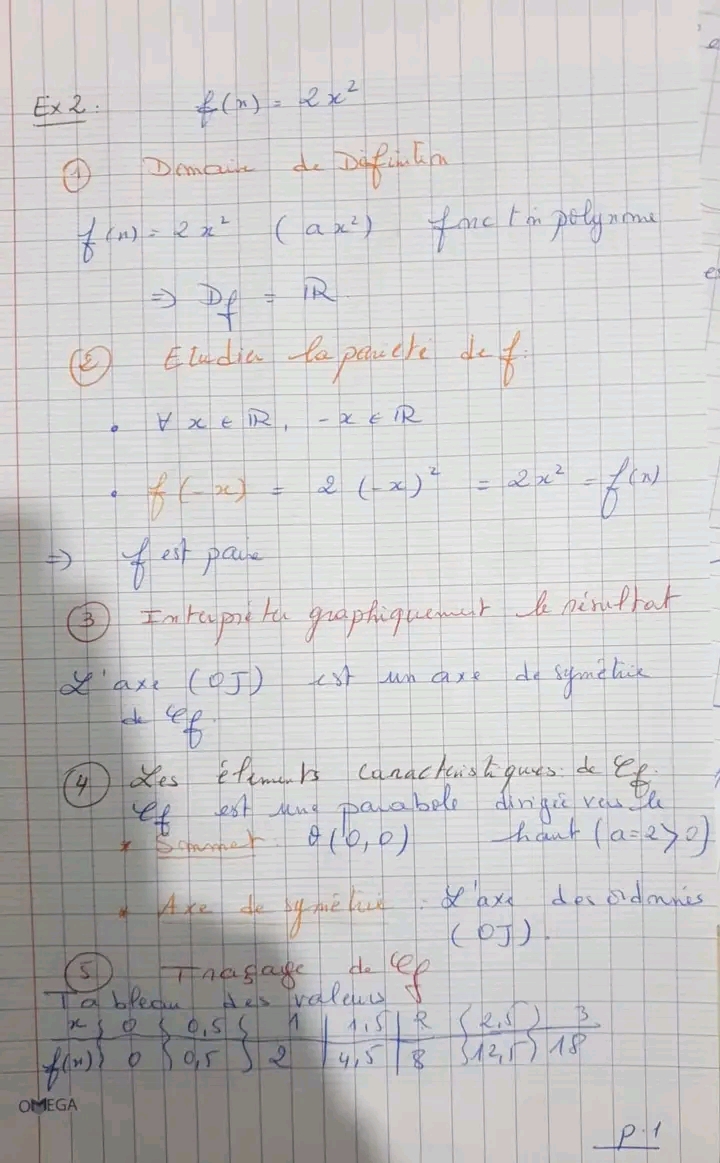 Ex 2 : f(x) = 2x²
① Domaine de Définition
f(x) = 2x² (ax²) fonction polynome
⇒ Df = ℝ
② Etudier la parité de f.
• ∀ x ∈ ℝ, -x ∈ ℝ
• f(-x) = 2(-x)² = 2x² = f(x)
⇒ f est paire
③ Interpréter graphiquement le résultat
L'axe (OJ) est un axe de symétrie
de Cf.
④ Les éléments caractéristiques de Cf.
Cf est une parabole dirigée vers le
* Sommet θ(0,0) haut (a=2>0)
* Axe de symétrie : L'axe des ordonnés
(OJ).
⑤ Traçage de Cf
Tableau des valeurs
x | 0 | 0,5 | 1 | 1,5 | 2 | 2,5 | 3
f(x) | 0 | 0,5 | 2 | 4,5 | 8 | 12,5 | 18
OMEGA
p.1